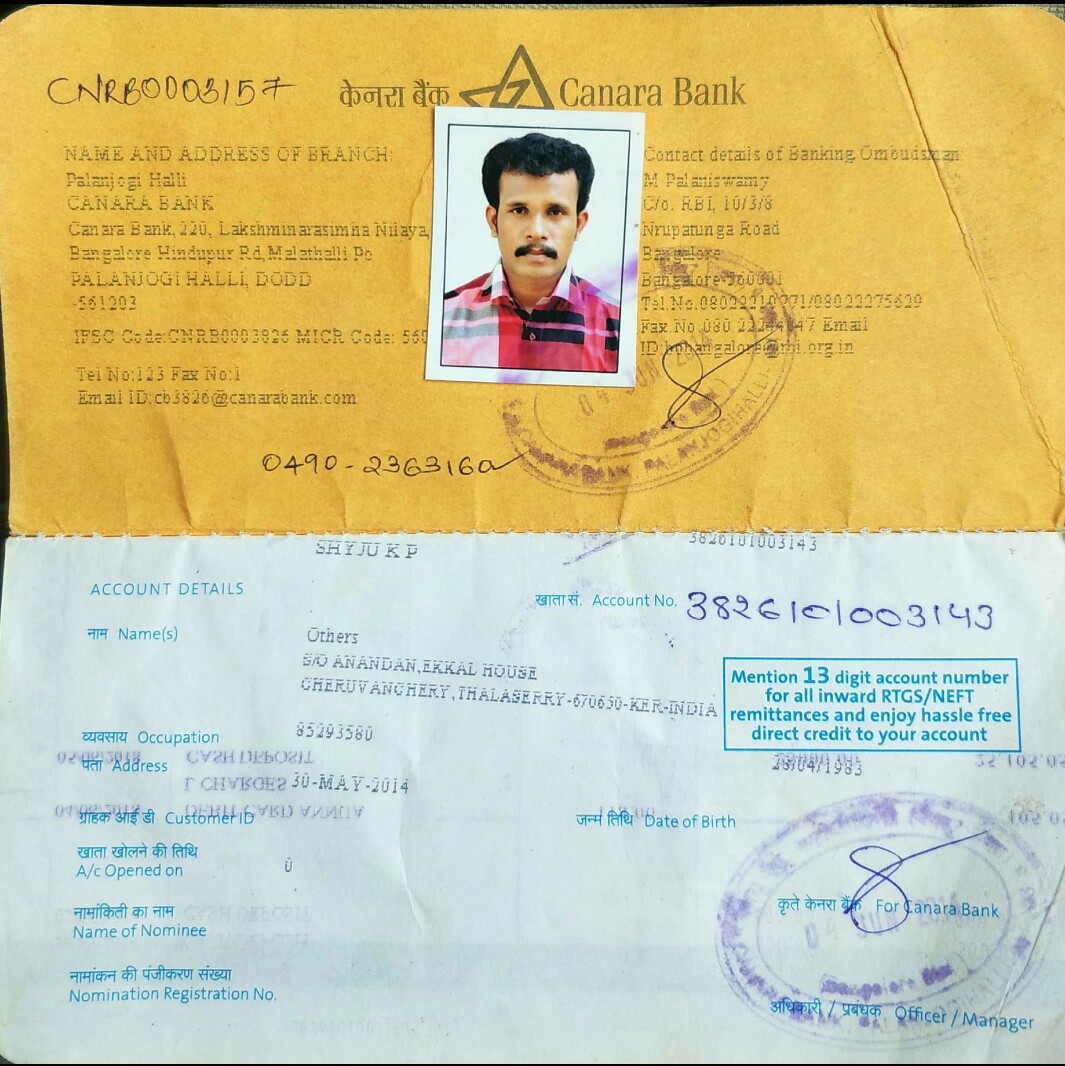 CNRB0003157
केनरा बैंक Canara Bank
NAME AND ADDRESS OF BRANCH:
Palanjogi Halli
CANARA BANK
Canara Bank, 220, Lakshminarasimha Nilaya,
Bangalore Hindupur Rd, Malathalli Po
PALANJOGI HALLI, DODD
-561203
IFSC Code:CNRB0003826 MICR Code: 560
Tel No:123 Fax No:1
Email ID:cb3826@canarabank.com
Contact details of Banking Ombudsman:
M Palaniswamy
C/o. RBI, 10/3/8
Nrupatunga Road
Bangalore
Bangalore-560001
Tel.No.08022210771/08022275629
Fax No.080 22244047 Email
ID:bobangalore@rbi.org.in
0490-2363160
SHYJU K P
3826101003143
ACCOUNT DETAILS
खाता सं. Account No. 3826101003143
नाम Name(s)
Others
S/O ANANDAN,EKKAL HOUSE
CHERUVANCHERY,THALASERRY-670650-KER-INDIA
Mention 13 digit account number
for all inward RTGS/NEFT
remittances and enjoy hassle free
direct credit to your account
व्यवसाय Occupation
85293580
पता Address
28/04/1983
30-MAY-2014
ग्राहक आई डी Customer ID
जन्म तिथि Date of Birth
खाता खोलने की तिथि
A/c Opened on
0
नामांकिती का नाम
Name of Nominee
कृते केनरा बैंक For Canara Bank
नामांकन की पंजीकरण संख्या
Nomination Registration No.
अधिकारी / प्रबंधक Officer / Manager